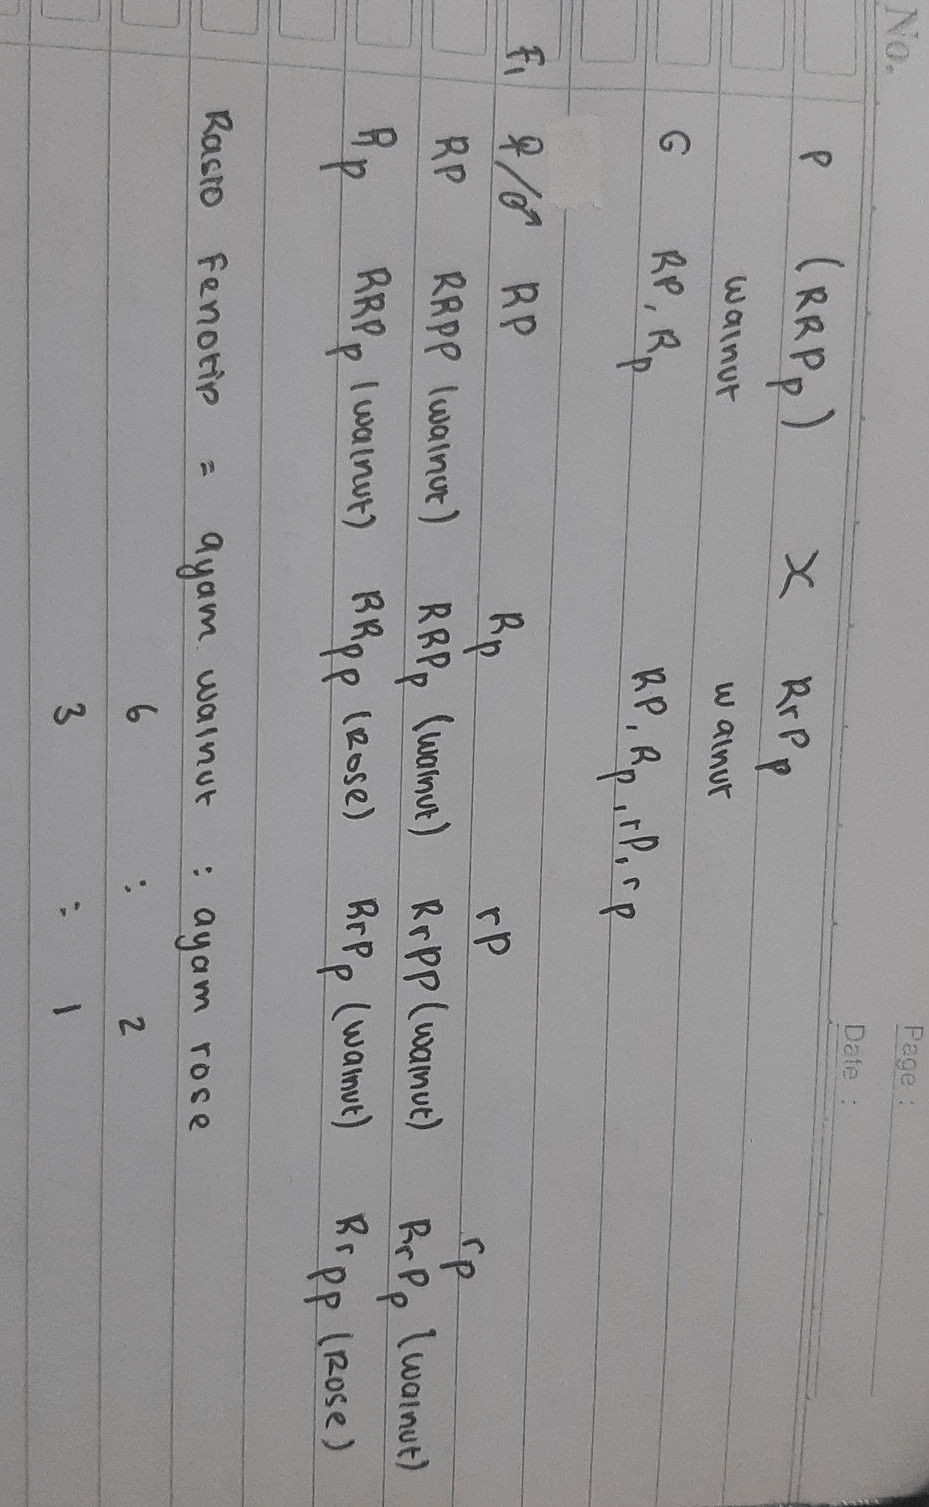 No.
Page :
Date :
P (RRPp) X RrPp
walnut walnut
G RP, Rp RP, Rp, rP, rp
F1 ♀/♂ RP Rp rP rp
RP RRPP (walnut) RRPp (walnut) RrPP (walnut) RrPp (walnut)
Rp RRPp (walnut) RRpp (Rose) RrPp (walnut) Rrpp (Rose)
Rasio Fenotip = ayam walnut : ayam rose
6 : 2
3 : 1